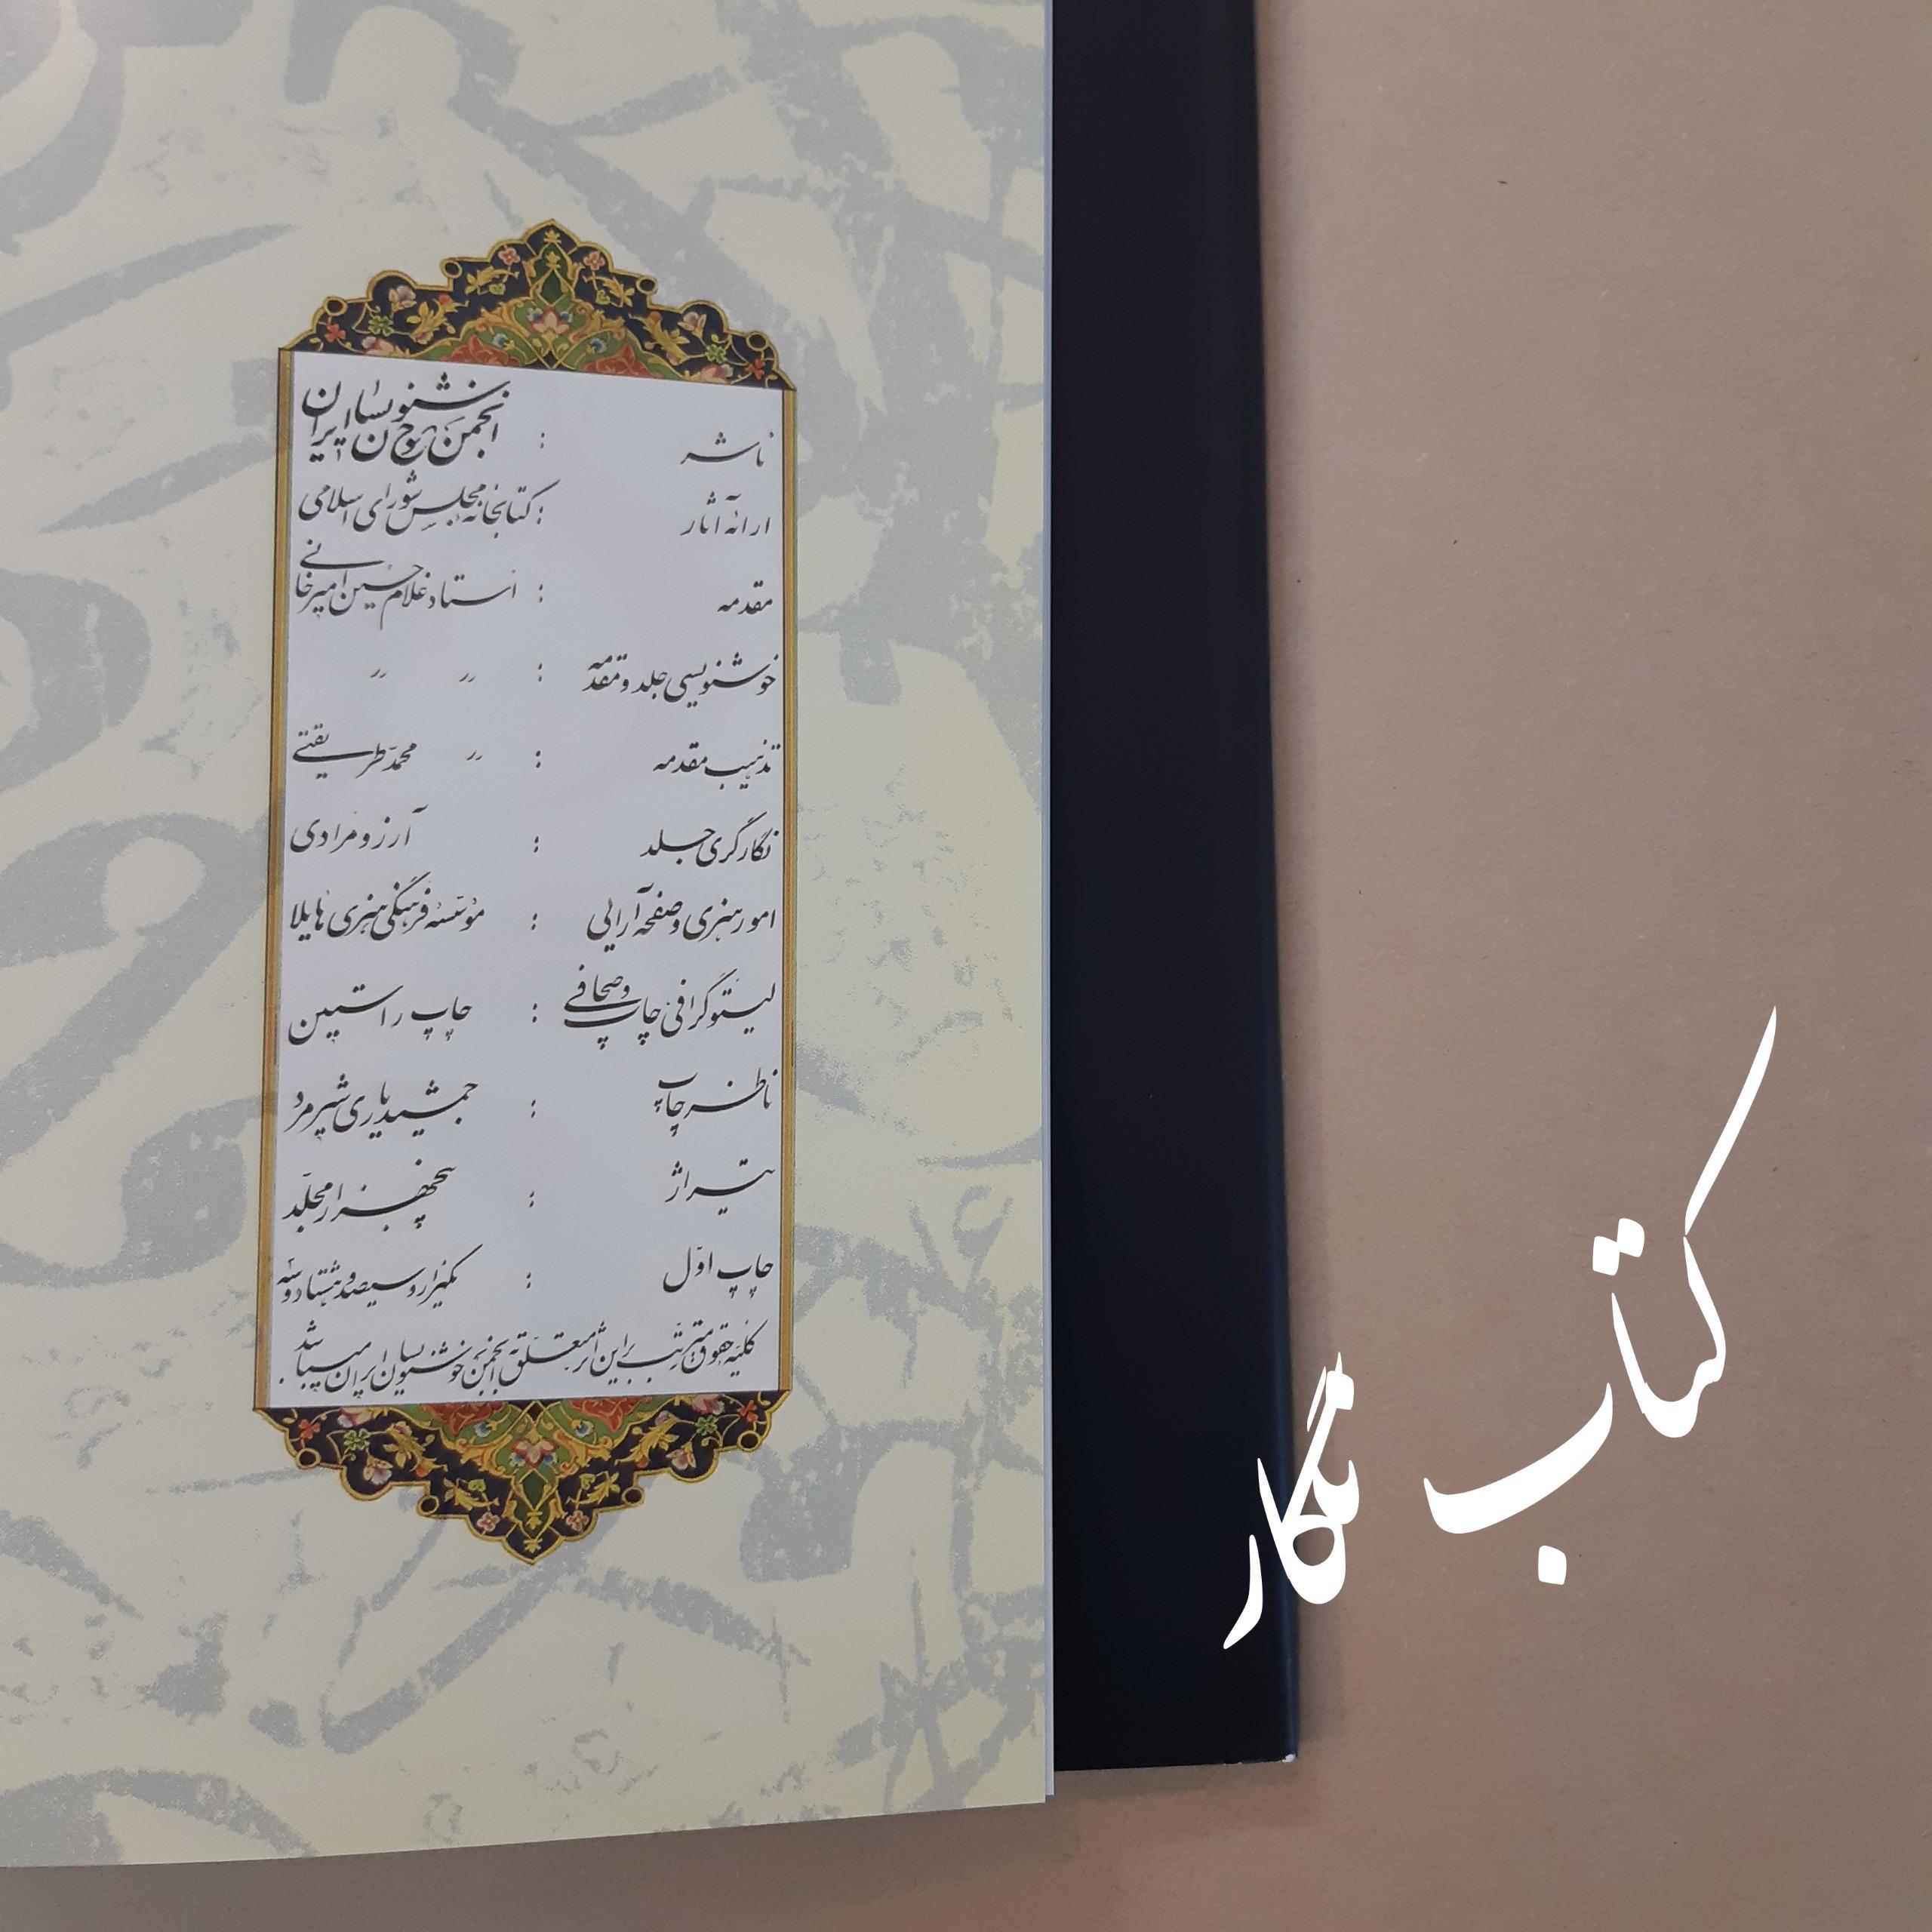 ناشر : انجمن خوشنویسان ایران
ارائه آثار : کتابخانه مجلس شورای اسلامی
مقدمه : استاد غلامحسین امیرخانی
خوشنویسی جلد و مقدمه : " "
تذهیب مقدمه : " محمد طریقتی
نگارگری جلد : آرزو مرادی
امور هنری و صفحه آرایی : مؤسسه فرهنگی هنری هایلا
لیتوگرافی چاپ و صحافی : چاپ راستین
ناظر چاپ : جمشید یاری شیرمرد
تیراژ : پنجهزار مجلد
چاپ اول : یکهزار و سیصد و هشتاد و سه
کلیه حقوق مترتب بر این اثر متعلق به انجمن خوشنویسان ایران میباشد.
کتاب نگار